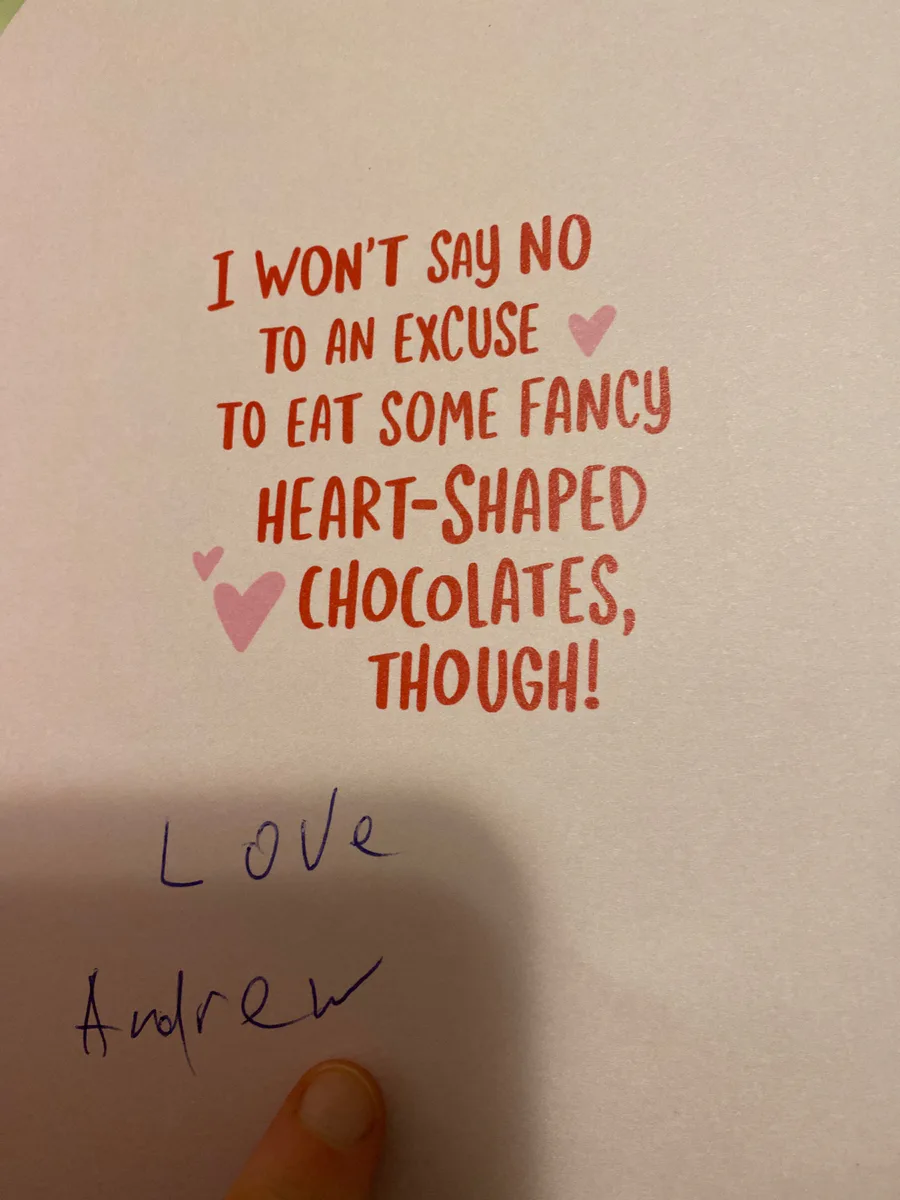 I WON'T SAY NO
TO AN EXCUSE
TO EAT SOME FANCY
HEART-SHAPED
CHOCOLATES,
THOUGH!
Love
Andrew